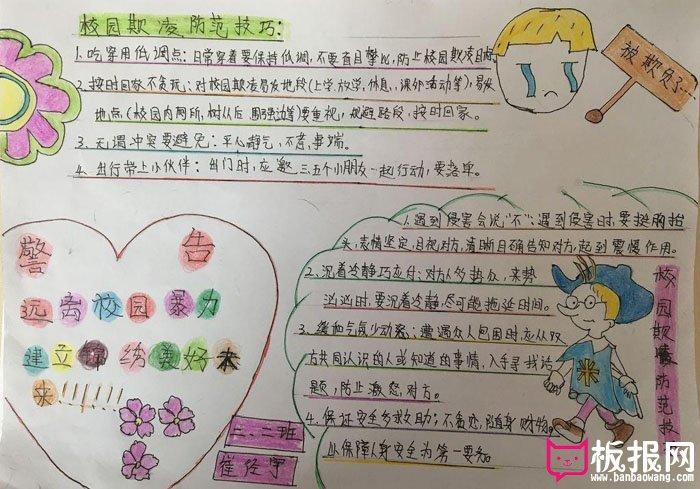 校园欺凌防范技巧:
1.吃穿用低调点:日常穿着要保持低调,不要盲目攀比,防止校园欺凌目标
2.按时回家不贪玩:对校园欺凌易发地段(上学,放学,休息,课外活动等),易发
地点(校园内厕所,树丛后 围强边等)要重视,规避路段,按时回家。
3.无谓冲突要避免:平心静气,不惹事端。
4.出行带上小伙伴:出门时,应邀三五个小朋友一起行动,要落单。
被欺负了
警告
远离校园暴力
建立 美好未
来!!!!!!
二、二班
崔 宇
1.遇到侵害会说"不":遇到侵害时,要挺胸抬
头,表情坚定,目视对方,清晰明确告知对方,起到震慑作用。
2.沉着冷静巧应付:对方人多势众,来势
汹汹时,要沉着冷静,尽可能拖延时间。
3.缓和气氛少动怒:遭遇众人包围时,应从双
方共同认识的人或知道的事情,入手寻找话
题,防止激怒对方。
4.保证安全多求助:不贪恋随身财物。
以保障人身安全为第一要务
校园欺 防范技
板报网
www.banbaowang.com